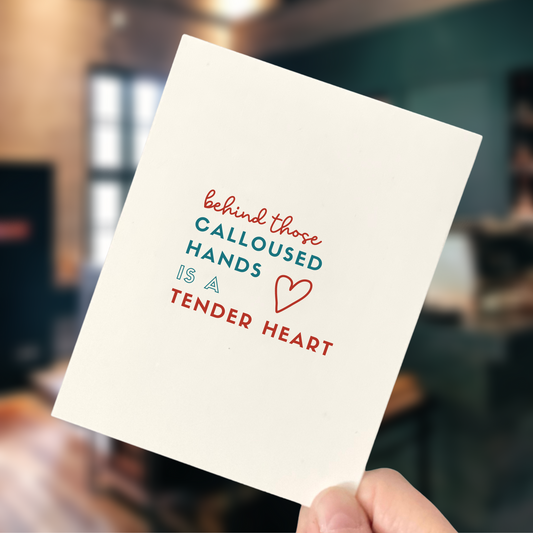 behind those
CALLOUSED
HANDS
IS A
TENDER HEART